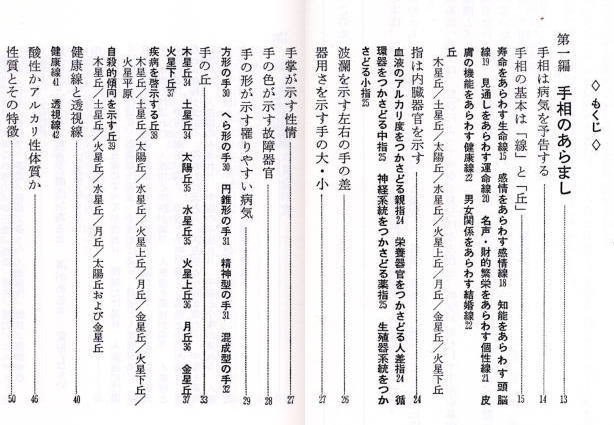 ◇ もくじ ◇
第一編 手相のあらまし……13
手相は病気を予告する……14
手相の基本は「線」と「丘」……15
寿命をあらわす生命線15 感情をあらわす感情線18 知能をあらわす頭脳
線19 見通しをあらわす運命線20 名声・財的繁栄をあらわす個性線21 皮
膚の機能をあらわす健康線22 男女関係をあらわす結婚線22
丘
木星丘／土星丘／太陽丘／水星丘／火星上丘／月丘／金星丘／火星下丘
指は内臓器官を示す……24
血液のアルカリ度をつかさどる親指24 栄養器官をつかさどる人差指24 循
環器をつかさどる中指25 神経系統をつかさどる薬指25 生殖器系統をつか
さどる小指25
波瀾を示す左右の手の差……26
器用さを示す手の大・小……27
手掌が示す性情……27
手の色が示す故障器官……28
手の形が示す罹りやすい病気……29
方形の手30 へら形の手30 円錐形の手31 精神型の手31 混成型の手32
手の丘……33
木星丘34 土星丘34 太陽丘35 水星丘35 火星上丘36 月丘36 金星丘37
火星下丘37
疾病を啓示する丘38
木星丘／土星丘／太陽丘／水星丘／火星上丘／月丘／金星丘／火星下丘／
火星平原
自殺的傾向を示す丘39
木星丘／土星丘／火星丘／水星丘／月丘／太陽丘および金星丘
健康線と透視線……40
健康線41 透視線42
酸性かアルカリ性体質か……46
性質とその特徴……50